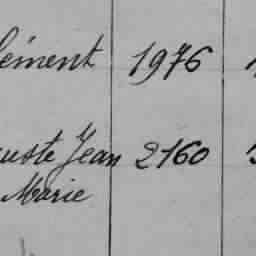 lément 1976
uste Jean 2160
Marie